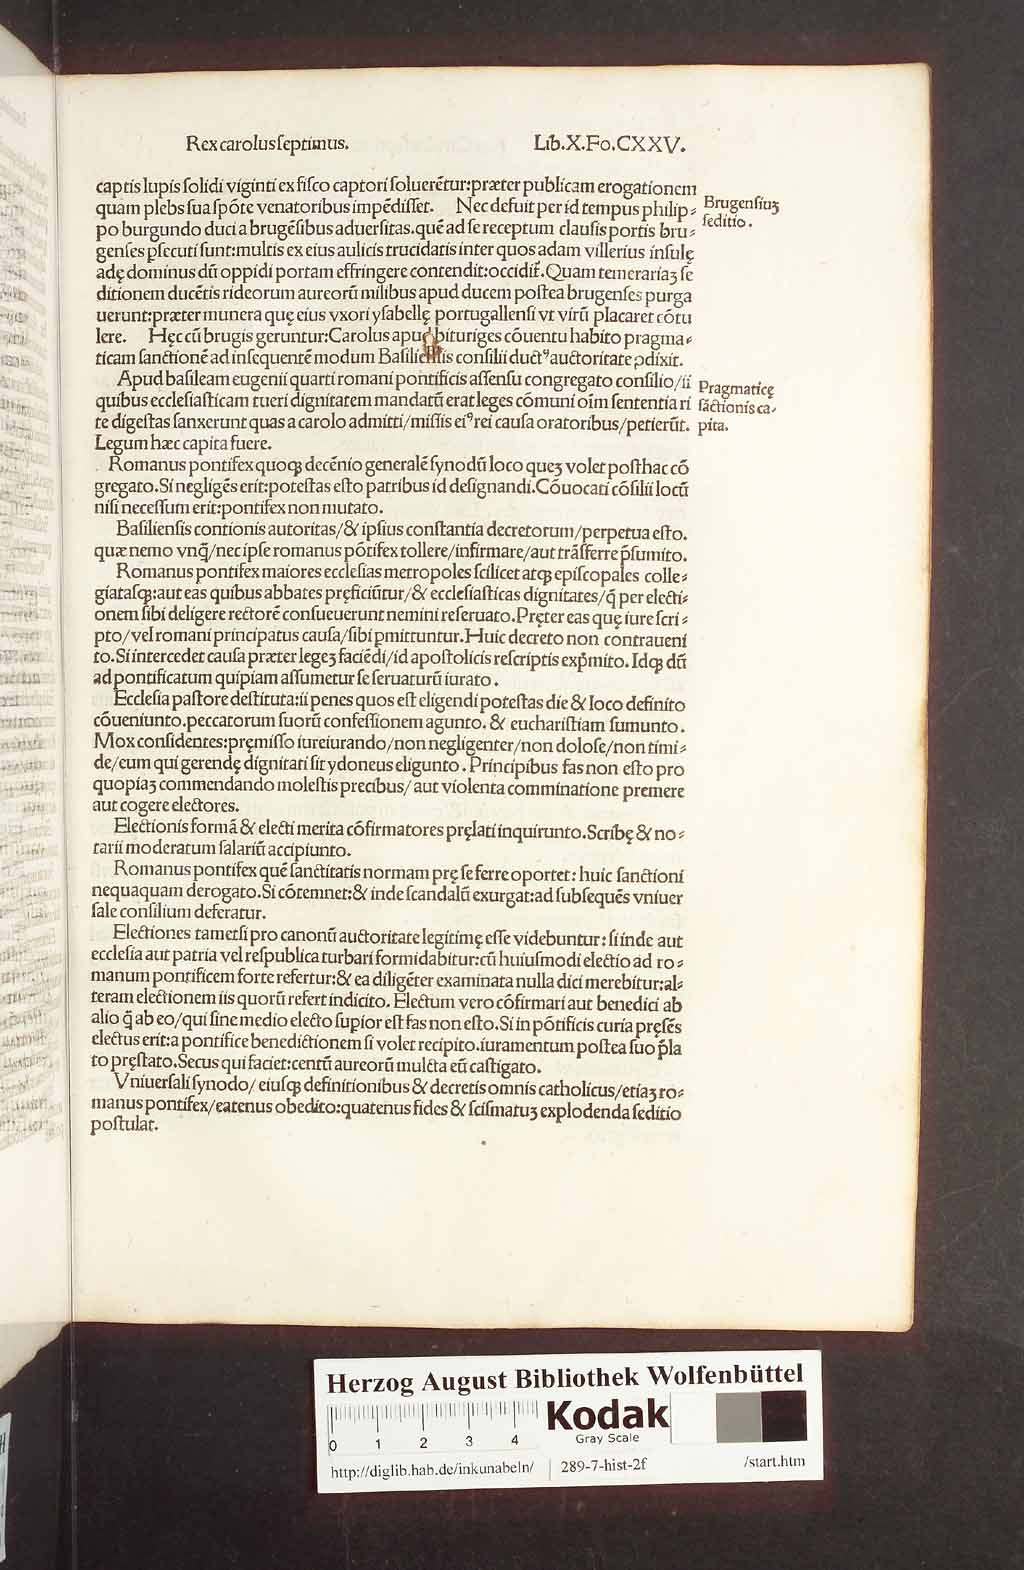 Rex carolus ſeptimus. Lib.X.Fo.CXXV.
captis lupis ſolidi viginti ex fiſco captori ſoluerẽtur:præter publicam erogationem
quam plebs ſua ſpõte venatoribus impẽdiſſet. Nec defuit per id tempus philip⸗
po burgundo duci a brugẽſibus aduerſitas.quẽ ad ſe receptum clauſis portis bru⸗
genſes ꝑſecuti ſunt:multis ex eius aulicis trucidatis inter quos adam villerius inſulę
adę dominus dũ oppidi portam effringere contendit:occidit̃.Quam temerariaꝫ ſe
ditionem ducẽtis rideorum aureorũ milibus apud ducem poſtea brugenſes purga
uerunt:præter munera quę eius vxori yſabellę portugallenſi vt virũ placaret cõtu
lere. Hęc cũ brugis geruntur:Carolus apud bituriges cõuentu habito pragma⸗
ticam ſanctionẽ ad inſequentẽ modum Baſilienſis conſilii ductꝰ auctoritate ꝓdixit.
Brugenſiuꝫ
ſeditio.
Apud baſileam eugenii quarti romani pontificis aſſenſu congregato conſilio/ii
quibus eccleſiaſticam tueri dignitatem mandatũ erat leges cõmuni oĩm ſententia ri
te digeſtas ſanxerunt quas a carolo admitti/miſſis eiꝰ rei cauſa oratoribus/petierũt.
Legum hæc capita fuere.
Pragmaticę
ſãctionis ca⸗
pita.
Romanus pontifex quoqꝫ decẽnio generalẽ ſynodũ loco queꝫ volet poſthac cõ
gregato.Si negligẽs erit:poteſtas eſto patribus id deſignandi.Cõuocati cõſilii locũ
niſi neceſſum erit:pontifex non mutato.
Baſilienſis contionis autoritas/& ipſius conſtantia decretorum/perpetua eſto.
quæ nemo vnq̃/nec ipſe romanus põtifex tollere/infirmare/aut trãſferre p̃ſumito.
Romanus pontifex maiores eccleſias metropoles ſcilicet atqꝫ epiſcopales colle⸗
giataſqꝫ:aut eas quibus abbates pręficiũtur/& eccleſiaſticas dignitates/q̃ per electi⸗
onem ſibi deligere rectorẽ conſueuerunt nemini reſeruato.Pręter eas quę iure ſcri⸗
pto/vel romani principatus cauſa/ſibi ꝑmittuntur.Huic decreto non contraueni
to.Si intercedet cauſa præter legeꝫ faciẽdi/id apoſtolicis reſcriptis exp̃mito.Idqꝫ dũ
ad pontificatum quipiam aſſumetur ſe ſeruaturũ iurato.
Eccleſia paſtore deſtituta:ii penes quos eſt eligendi poteſtas die & loco definito
cõueniunto.peccatorum ſuorũ confeſſionem agunto. & euchariſtiam ſumunto.
Mox conſidentes:pręmiſſo iureiurando/non negligenter/non doloſe/non timi⸗
de/eum qui gerendę dignitati ſit ydoneus eligunto. Principibus fas non eſto pro
quopiaꝫ commendando moleſtis precibus/ aut violenta comminatione premere
aut cogere electores.
Electionis formã & electi merita cõfirmatores pręlati inquirunto.Scribę & no⸗
tarii moderatum ſalariũ accipiunto.
Romanus pontifex quẽ ſanctitatis normam prę ſe ferre oportet: huic ſanctioni
nequaquam derogato.Si cõtemnet:& inde ſcandalũ exurgat:ad ſubſequẽs vniuer
ſale conſilium deferatur.
Electiones tametſi pro canonũ auctoritate legitimę eſſe videbuntur: ſi inde aut
eccleſia aut patria vel reſpublica turbari formidabitur:cũ huiuſmodi electio ad ro⸗
manum pontificem forte refertur:& ea diligẽter examinata nulla dici merebitur:al⸗
teram electionem iis quorũ refert indicito. Electum vero cõfirmari aut benedici ab
alio q̃ ab eo/qui ſine medio electo ſupior eſt fas non eſto.Si in põtificis curia pręſẽs
electus erit:a pontifice benedictionem ſi volet recipito.iuramentum poſtea ſuo p̃la
to pręſtato.Secus qui faciet:centũ aureorũ mulcta eũ caſtigato.
Vniuerſali ſynodo/ eiuſqꝫ definitionibus & decretis omnis catholicus/etiaꝫ ro⸗
manus pontifex/eatenus obedito:quatenus fides & ſciſmatuꝫ explodenda ſeditio
poſtulat.
Herzog August Bibliothek Wolfenbüttel
0 1 2 3 4
Kodak
Gray Scale
http://diglib.hab.de/inkunabeln/ 289-7-hist-2f /start.htm